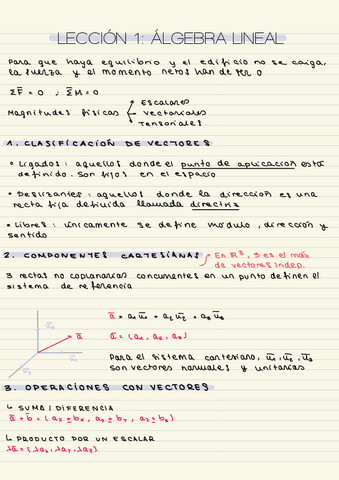 LECCIÓN 1: ÁLGEBRA LINEAL
Para que haya equilibrio y el edificio no se caiga,
la fuerza y el momento netos han de ser 0
ΣF̄ = 0 ; ΣM̄ = 0
Magnitudes físicas → Escalares
→ Vectoriales
→ Tensoriales
1. CLASIFICACIÓN DE VECTORES
• Ligados: aquellos donde el punto de aplicación está
definido. Son fijos en el espacio
• Deslizantes: aquellos donde la dirección es una
recta fija definida llamada directriz
• Libres: únicamente se define módulo, dirección y
sentido
2. COMPONENTES CARTESIANAS → En R³, 3 es el máx
de vectores indep.
3 rectas no coplanarias concurrentes en un punto definen el
sistema de referencia
ā = a₁ū₁ + a₂ū₂ + a₃ū₃
ā = (a₁, a₂, a₃)
ā
Para el sistema cartesiano, ū₁, ū₂, ū₃
son vectores normales y unitarios
3. OPERACIONES CON VECTORES
↳ SUMA / DIFERENCIA
ā ± b̄ = (aₓ ± bₓ, aᵧ ± bᵧ, a_z ± b_z)
↳ PRODUCTO POR UN ESCALAR
λā = (λa₁, λa₂, λa₃)